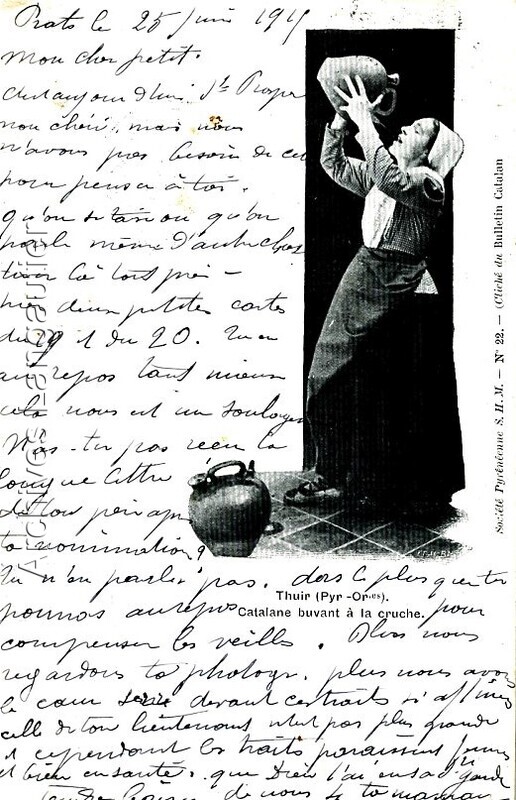 Prats le 25 juin 1915
Mon cher petit.
C'est aujourd'hui St Prosper
mon chéri, mais nous
n'avons pas besoin de cela
pour penser à toi.
qu'on se taise ou qu'on
parle même d'autre chose
tu es là tout près —
hier deux petites cartes
du 19 et du 20. Tu es
au repos tant mieux
cela nous est un soulagem
N'as-tu pas reçu la
longue lettre
de ton père après
ta nomination?
Tu n'en parles pas. dors le plus que tu
pourras au repos pour
compenser les veilles. Plus nous
regardons ta photogr. plus nous avons
le cœur serré devant ces traits si affinés
celle de ton lieutenant n'est pas plus grande
et cependant les traits paraissent fermes
et bien en santé. que Dieu l'ai en sa Ste garde
Tendre baiser de nous ta maman
Thuir (Pyr-Or.es).
Catalane buvant à la cruche.
Société Pyrénéenne S. H. M. — N° 22. — (Cliché du Bulletin Catalan
Archives_langaulier